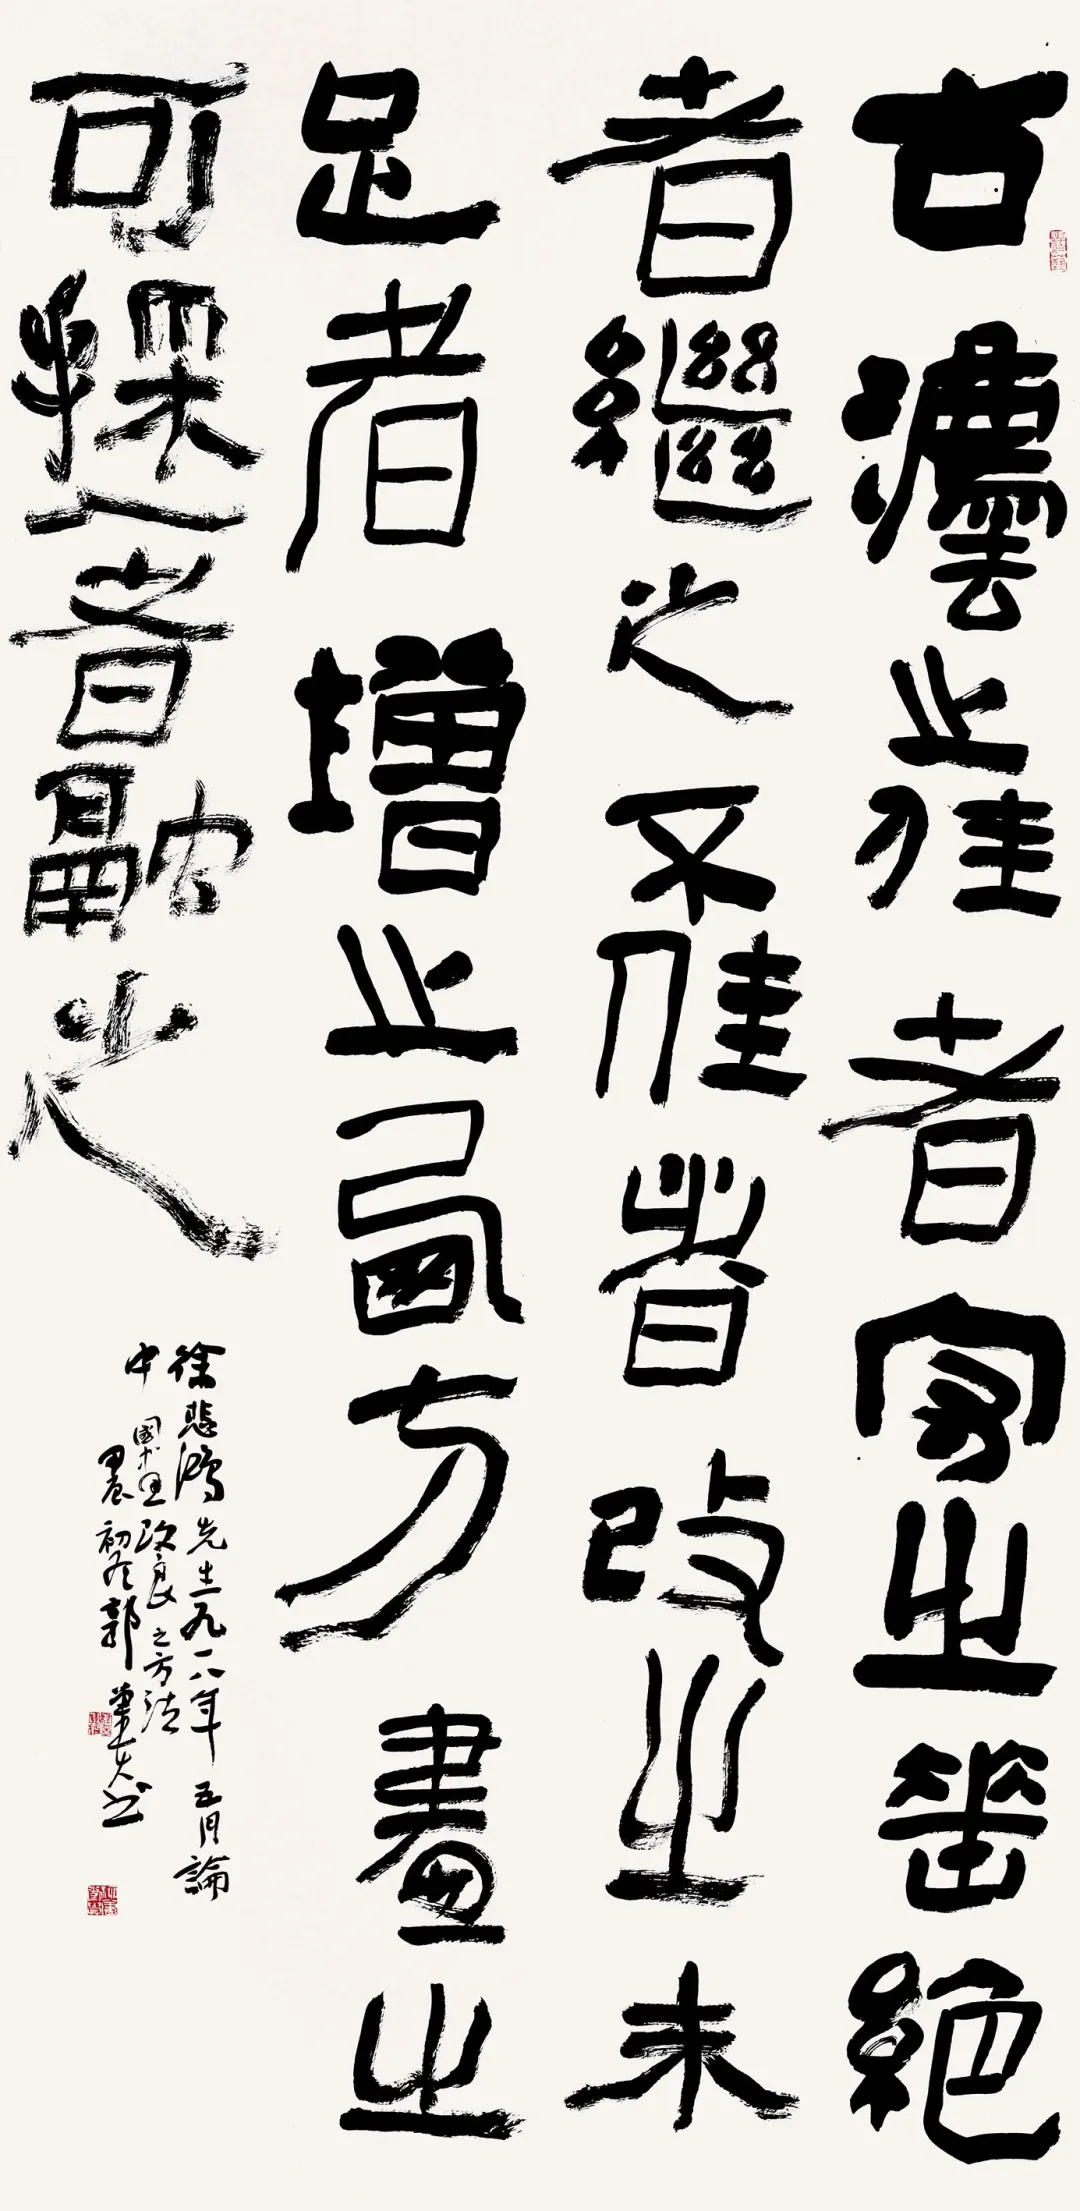 古灋之佳者守之垂絕
者繼之不佳者改之未
足者增之西方畫之
可採入者融之
徐悲鴻先生一九一八年五月論
中國畫改良之方法
初冬郭 書